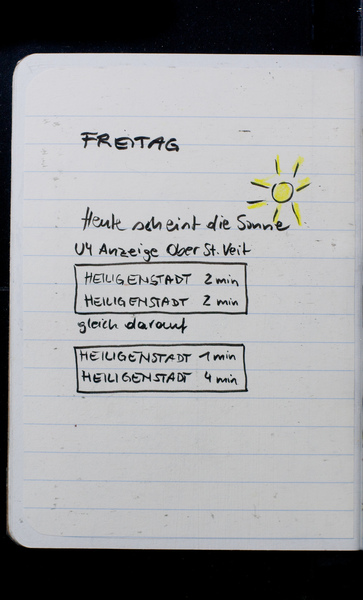 FREITAG
Heute scheint die Sonne
U4 Anzeige Ober St. Veit
HEILIGENSTADT 2 min
HEILIGENSTADT 2 min
gleich darauf
HEILIGENSTADT 1 min
HEILIGENSTADT 4 min